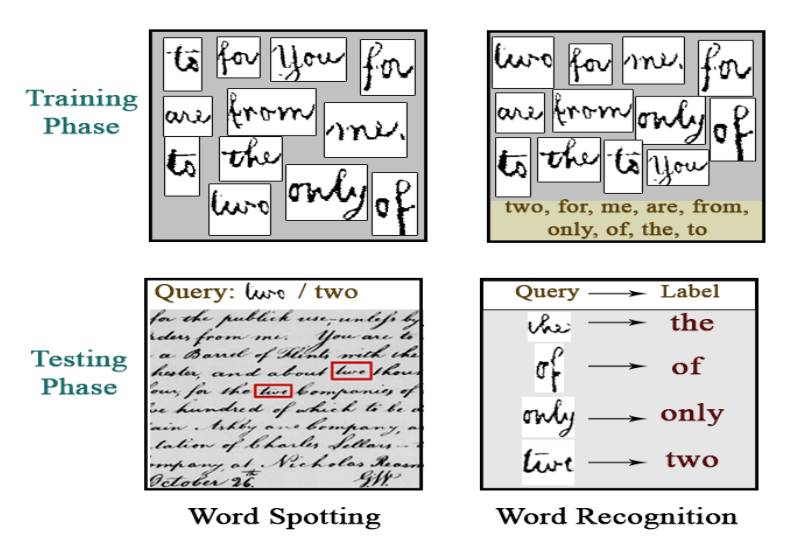 Training
Phase
to for You for
are from me.
to the
two only of
two for me. for
are from only of
to the to You
two, for, me, are, from,
only, of, the, to
Testing
Phase
Query: two / two
for the publick use,-unless by
ders from me. You are to
a Barrel of Flints with the
hester, and about two thous
our, for the two Companies of
ve hundred of which to be d
ain Ashby and Company, a
tation of Charles Sellars--t
mpany, at Nicholas Reasm
October 26.th G.W.
Word Spotting
Query → Label
the → the
of → of
only → only
two → two
Word Recognition